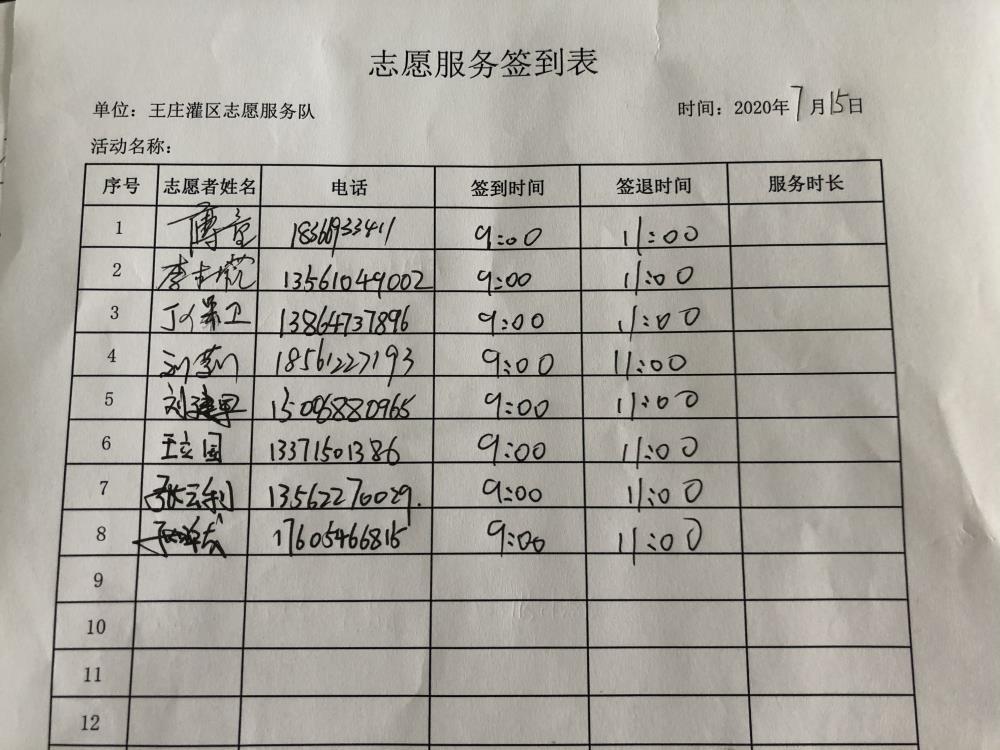 志愿服务签到表
单位：王庄灌区志愿服务队 时间：2020年7月15日
活动名称：
序号 志愿者姓名 电话 签到时间 签退时间 服务时长
1 18366933411 9:00 11:00
2 13561049002 9:00 11:00
3 丁保卫 13864737896 9:00 11:00
4 刘莉 18561227193 9:00 11:00
5 15096880965 9:00 11:00
6 王立国 13371501386 9:00 11:00
7 张云利 13562270029. 9:00 11:00
8 17605466815 9:00 11:00
9
10
11
12